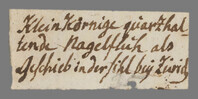 Klein Körnige quarzhal
tende Nagelfluh als
Geschieb in der Sihl bÿ Zürich